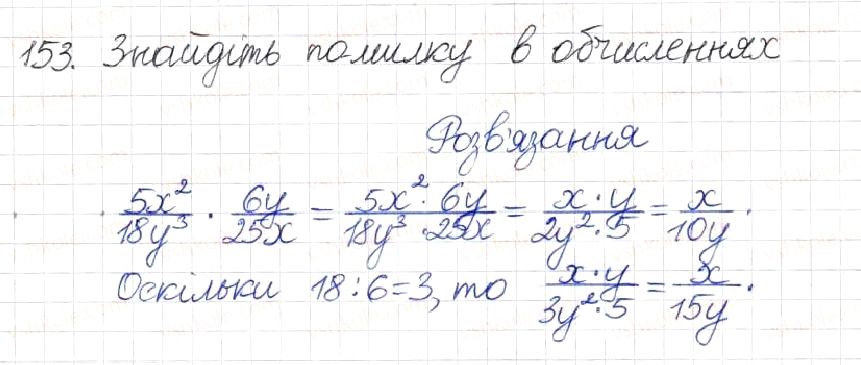 153. Знайдіть помилку в обчисленнях
Розв'язання
5x²/18y³ · 6y/25x = 5x²·6y/18y³·25x = x·y/2y²·5 = x/10y.
Оскільки 18:6=3, то x·y/3y²·5 = x/15y.